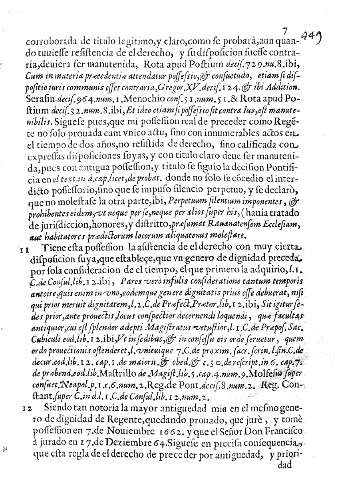 7
949
corroborada de titulo legitimo, y claro, como se probarà, aun quan-
do tuuiesse resistencia de el derecho, y su disposicion fuesse contra-
ria, deuiera ser manutenida, Rota apud Postium decis. 729. nu. 8. ibi,
Cum in materia præcedentiæ attendatur possessio, & consuetudo, etiam si dis-
positio iuris communis esset contraria, Gregor. XV. decis. 124. & ibi Addition.
Serafin. decis. 964. num. 1. Menochio conf. 51. num. 51. & Rota apud Pos-
tium decis. 32. num. 8. ibi, Et ideo etiam si possessio sit contra Ius, est manute-
nibilis. Siguese pues, que mi possession real de preceder como Regẽ-
te no solo prouada cum vnico actu, sino con innumerables actos en
el tiempo de dos años, no resistida de derecho, sino calificada con
expressas disposiciones suyas, y con titulo claro deue ser manuteni-
da, pues con antigua possession, y titulo se siguio la decision Pontifi-
cia en el text. in d. cap. licet, de probat. donde no solo se cõcedio el inter-
dicto possessorio, sino que se impuso silencio perpetuo, y se declarò,
que no molestasse la otra parte, ibi, Perpetuum silentium imponentes, &
prohibentes eidem, vt neque per se, neque per alios super his, (hauia tratado
de jurisdiccion, honores, y distrito, præsumat Rauanatensem Ecclesiam,
aut habitatores prædictorum locorum aliquatenus molestare.
11 Tiene esta possession la asistencia de el derecho con muy cierta
disposicion suya, que establece, que vn genero de dignidad preceda
por sola consideracion de el tiempo, el que primero la adquirio, l. 1.
C. de Consul. lib. 12. ibi, Pares verò infulis consideratione tantum temporis
anteire, quis enim in vno, eodemque genere dignitatis prius esse debuerat, nisi
qui prior meruit dignitatem, l. 2. C. de Præfect. Prætor. lib. 12. ibi,
des prior, ante prouectis, locus conspectior decernendi loquendi, que facultas
antiquior, cui est splendor adepti Magistratus vetustior, l. 1. C. de Præpos. Sac.
Cubiculi eod. lib. 12. ibi, Vt in sedibus, & in consessu eis ordo seruetur, quem
ordo prouectionis ostenderit, l. vnicuique 7. C. de proxim. sacr. scrin. l. fin. C. de
decur. eod. lib. 12. cap. 1. de maiorit. & obed. & c. 30. de rescript. in 6. cap. 7.
de præbend. eod. lib. Mastrillo de Magist. lib. 5. cap. 4. num. 9. Molfesio super
consuet. Neapol. p. 1. r. 6. num. 2. Reg. de Pont. decis. 8. num. 2. Reg. Con-
stant. super C. in d. l. 1. C. de Consul. lib. 12. num. 2.
12 Siendo tan notoria la mayor antiguedad mia en el mesmo gene-
ro de dignidad de Regente, quedando prouado, que jurè, y tomè
possession en 7. de Nouiembre 1662. y que el Señor Don Francisco
à jurado en 17. de Deziembre 64. Siguese en precisa consequencia,
que esta regla de el derecho de preceder por antiguedad, y priori-
dad